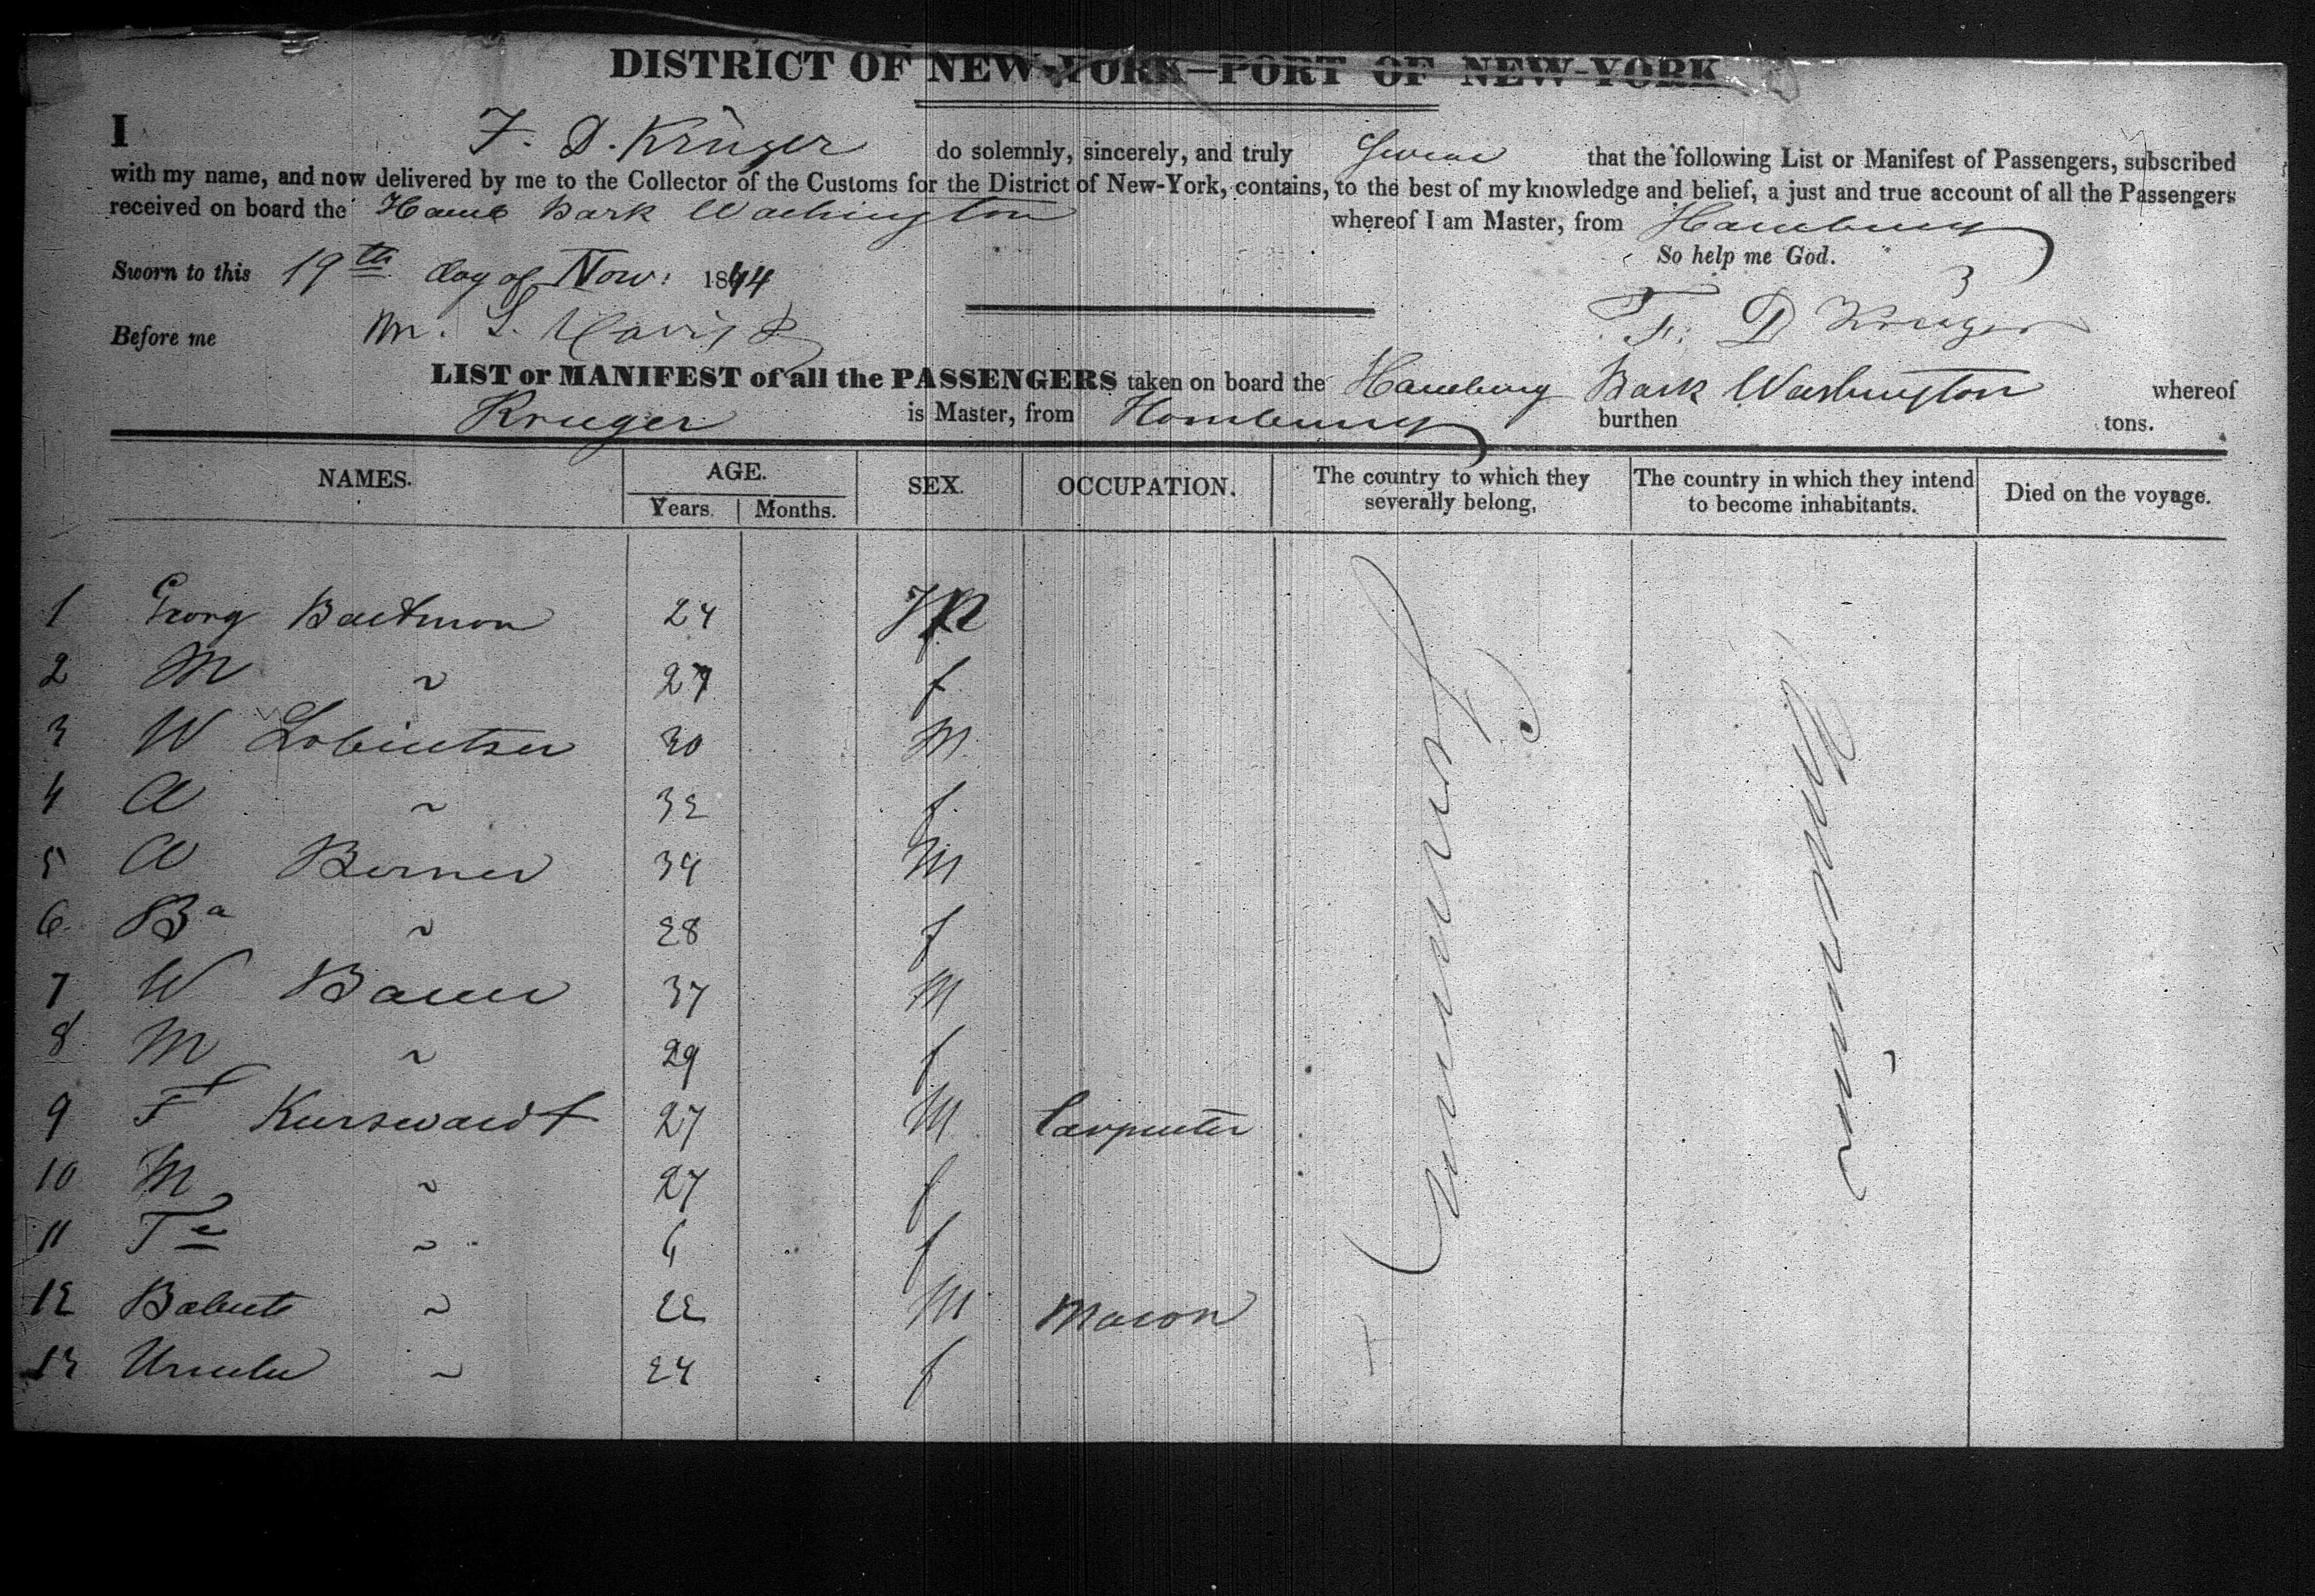 DISTRICT OF NEW-YORK—PORT OF NEW-YORK
I F. D. Krüger do solemnly, sincerely, and truly Swear that the following List or Manifest of Passengers, subscribed
with my name, and now delivered by me to the Collector of the Customs for the District of New-York, contains, to the best of my knowledge and belief, a just and true account of all the Passengers
received on board the Hamb Bark Washington whereof I am Master, from Hamburg
So help me God.
Sworn to this 19th day of Nov: 1844
Before me F. D Kruger
LIST or MANIFEST of all the PASSENGERS taken on board the Hamburg Bark Washington whereof
Kruger is Master, from Hamburg burthen tons.
NAMES. AGE. SEX. OCCUPATION. The country to which they severally belong, The country in which they intend to become inhabitants. Died on the voyage.
Years. Months.
1 Georg 24 M
2 M ~ 27 f
3 W 30 M
4 A ~ 32 f
5 A Berner 34 M
6 Ba ~ 28 f
7 W Bauer 37 M
8 M ~ 29 f
9 F 27 M Carpenter
10 M ~ 27 f
11 Te ~ 6 f
12 ~ 22 M Mason
13 Ursula ~ 24 f
Germany